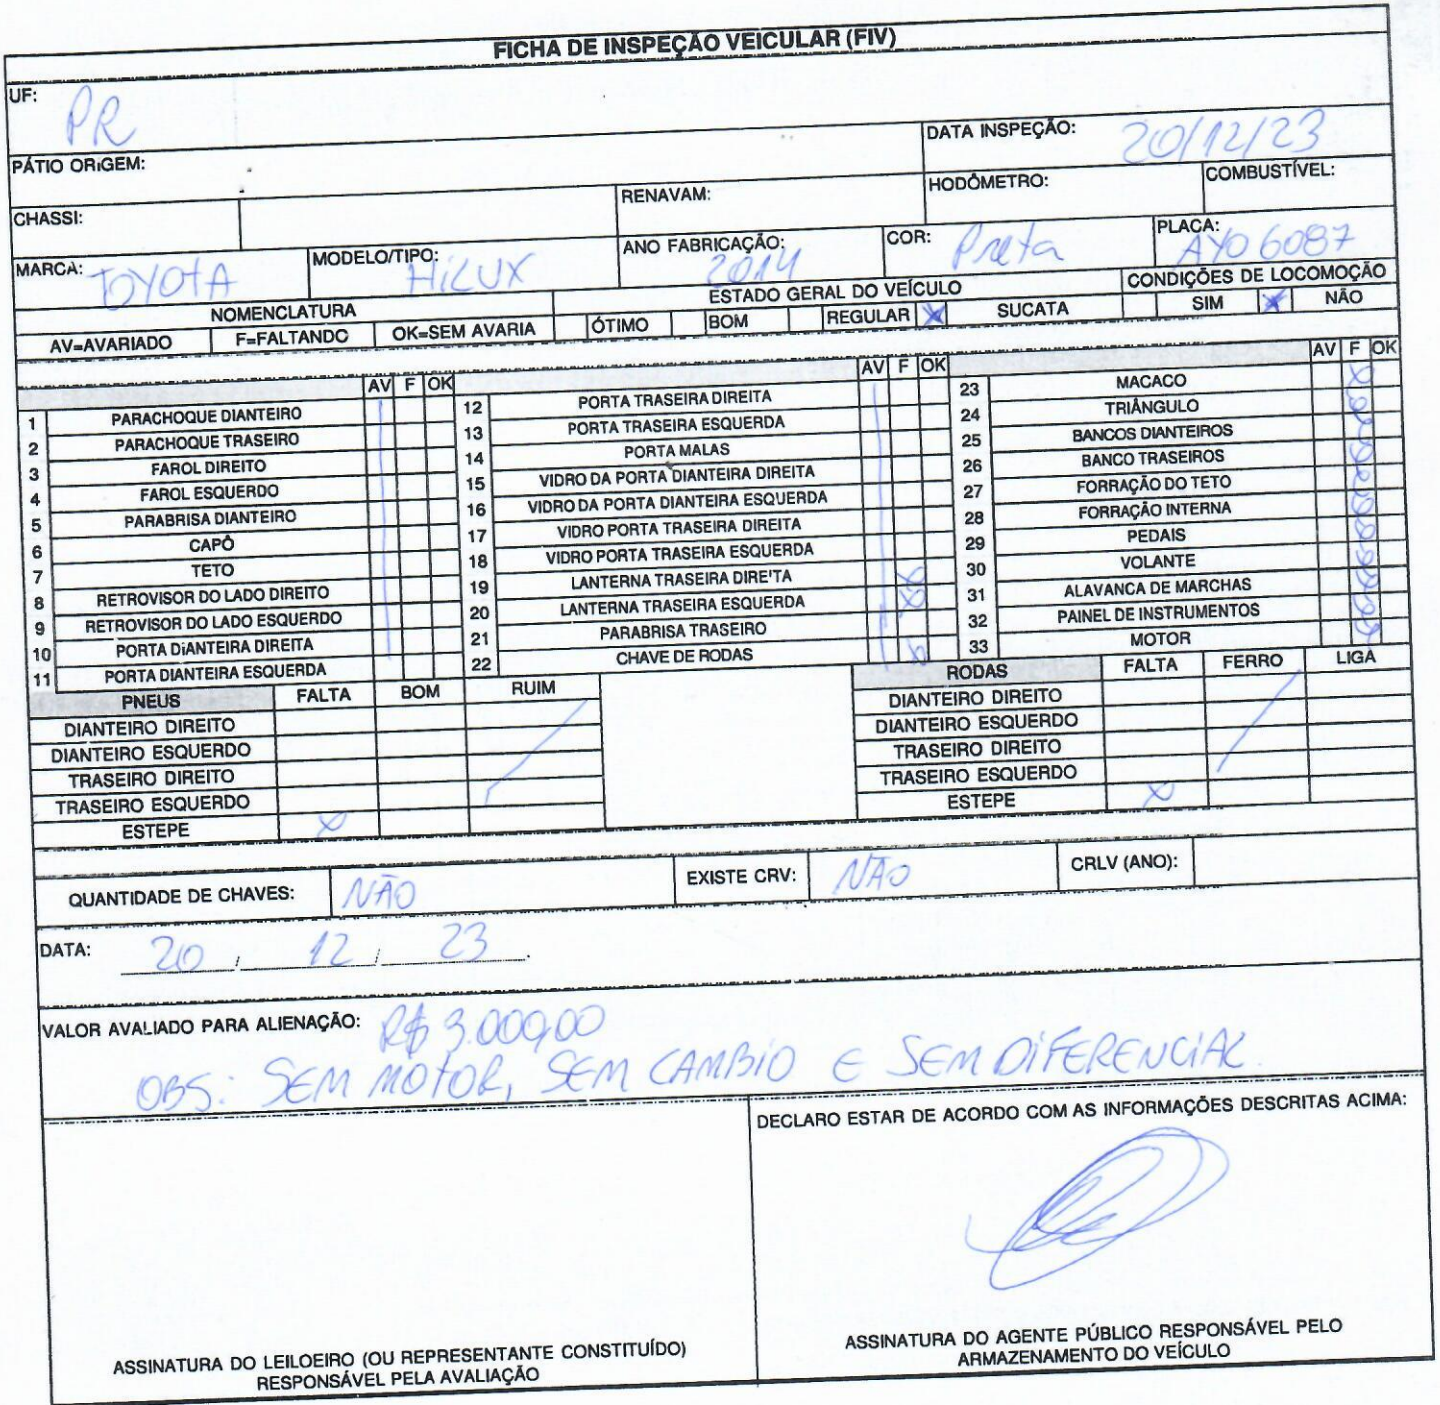 FICHA DE INSPEÇÃO VEICULAR (FIV)
UF: PR
PÁTIO ORIGEM:
DATA INSPEÇÃO: 20/12/23
CHASSI:
RENAVAM:
HODÔMETRO:
COMBUSTÍVEL:
MARCA: TOYOTA
MODELO/TIPO: HiLUX
ANO FABRICAÇÃO: 2014
COR: Preta
PLACA: AYO 6087
NOMENCLATURA
ESTADO GERAL DO VEÍCULO
CONDIÇÕES DE LOCOMOÇÃO
AV=AVARIADO F=FALTANDO OK=SEM AVARIA ÓTIMO BOM REGULAR X SUCATA SIM X NÃO
AV F OK
1 PARACHOQUE DIANTEIRO
2 PARACHOQUE TRASEIRO
3 FAROL DIREITO
4 FAROL ESQUERDO
5 PARABRISA DIANTEIRO
6 CAPÔ
7 TETO
8 RETROVISOR DO LADO DIREITO
9 RETROVISOR DO LADO ESQUERDO
10 PORTA DIANTEIRA DIREITA
11 PORTA DIANTEIRA ESQUERDA
AV F OK
12 PORTA TRASEIRA DIREITA
13 PORTA TRASEIRA ESQUERDA
14 PORTA MALAS
15 VIDRO DA PORTA DIANTEIRA DIREITA
16 VIDRO DA PORTA DIANTEIRA ESQUERDA
17 VIDRO PORTA TRASEIRA DIREITA
18 VIDRO PORTA TRASEIRA ESQUERDA
19 LANTERNA TRASEIRA DIREITA X
20 LANTERNA TRASEIRA ESQUERDA X
21 PARABRISA TRASEIRO
22 CHAVE DE RODAS X
AV F OK
23 MACACO X
24 TRIÂNGULO X
25 BANCOS DIANTEIROS X
26 BANCO TRASEIROS X
27 FORRAÇÃO DO TETO X
28 FORRAÇÃO INTERNA X
29 PEDAIS X
30 VOLANTE X
31 ALAVANCA DE MARCHAS X
32 PAINEL DE INSTRUMENTOS X
33 MOTOR X
PNEUS FALTA BOM RUIM
DIANTEIRO DIREITO
DIANTEIRO ESQUERDO
TRASEIRO DIREITO
TRASEIRO ESQUERDO
ESTEPE X
RODAS FALTA FERRO LIGA
DIANTEIRO DIREITO
DIANTEIRO ESQUERDO
TRASEIRO DIREITO
TRASEIRO ESQUERDO
ESTEPE X
QUANTIDADE DE CHAVES: NÃO
EXISTE CRV: NÃO
CRLV (ANO):
DATA: 20 / 12 / 23.
VALOR AVALIADO PARA ALIENAÇÃO: R$ 3.000,00
OBS: SEM MOTOR, SEM CAMBIO E SEM DiFERENCiAL.
DECLARO ESTAR DE ACORDO COM AS INFORMAÇÕES DESCRITAS ACIMA:
ASSINATURA DO LEILOEIRO (OU REPRESENTANTE CONSTITUÍDO)
RESPONSÁVEL PELA AVALIAÇÃO
ASSINATURA DO AGENTE PÚBLICO RESPONSÁVEL PELO
ARMAZENAMENTO DO VEÍCULO